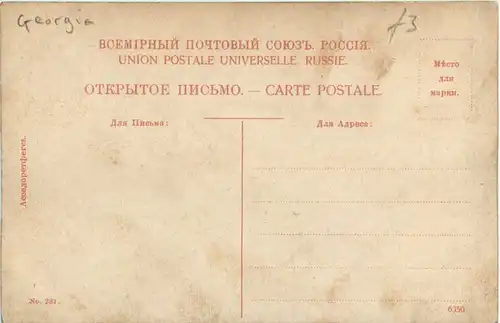 Georgia
£3
ВСЕМІРНЫЙ ПОЧТОВЫЙ СОЮЗЪ. РОССІЯ.
UNION POSTALE UNIVERSELLE. RUSSIE.
ОТКРЫТОЕ ПИСЬМО. — CARTE POSTALE
Мѣсто
для
марки.
Для Письма:
Для Адреса:
No. 231.
6350